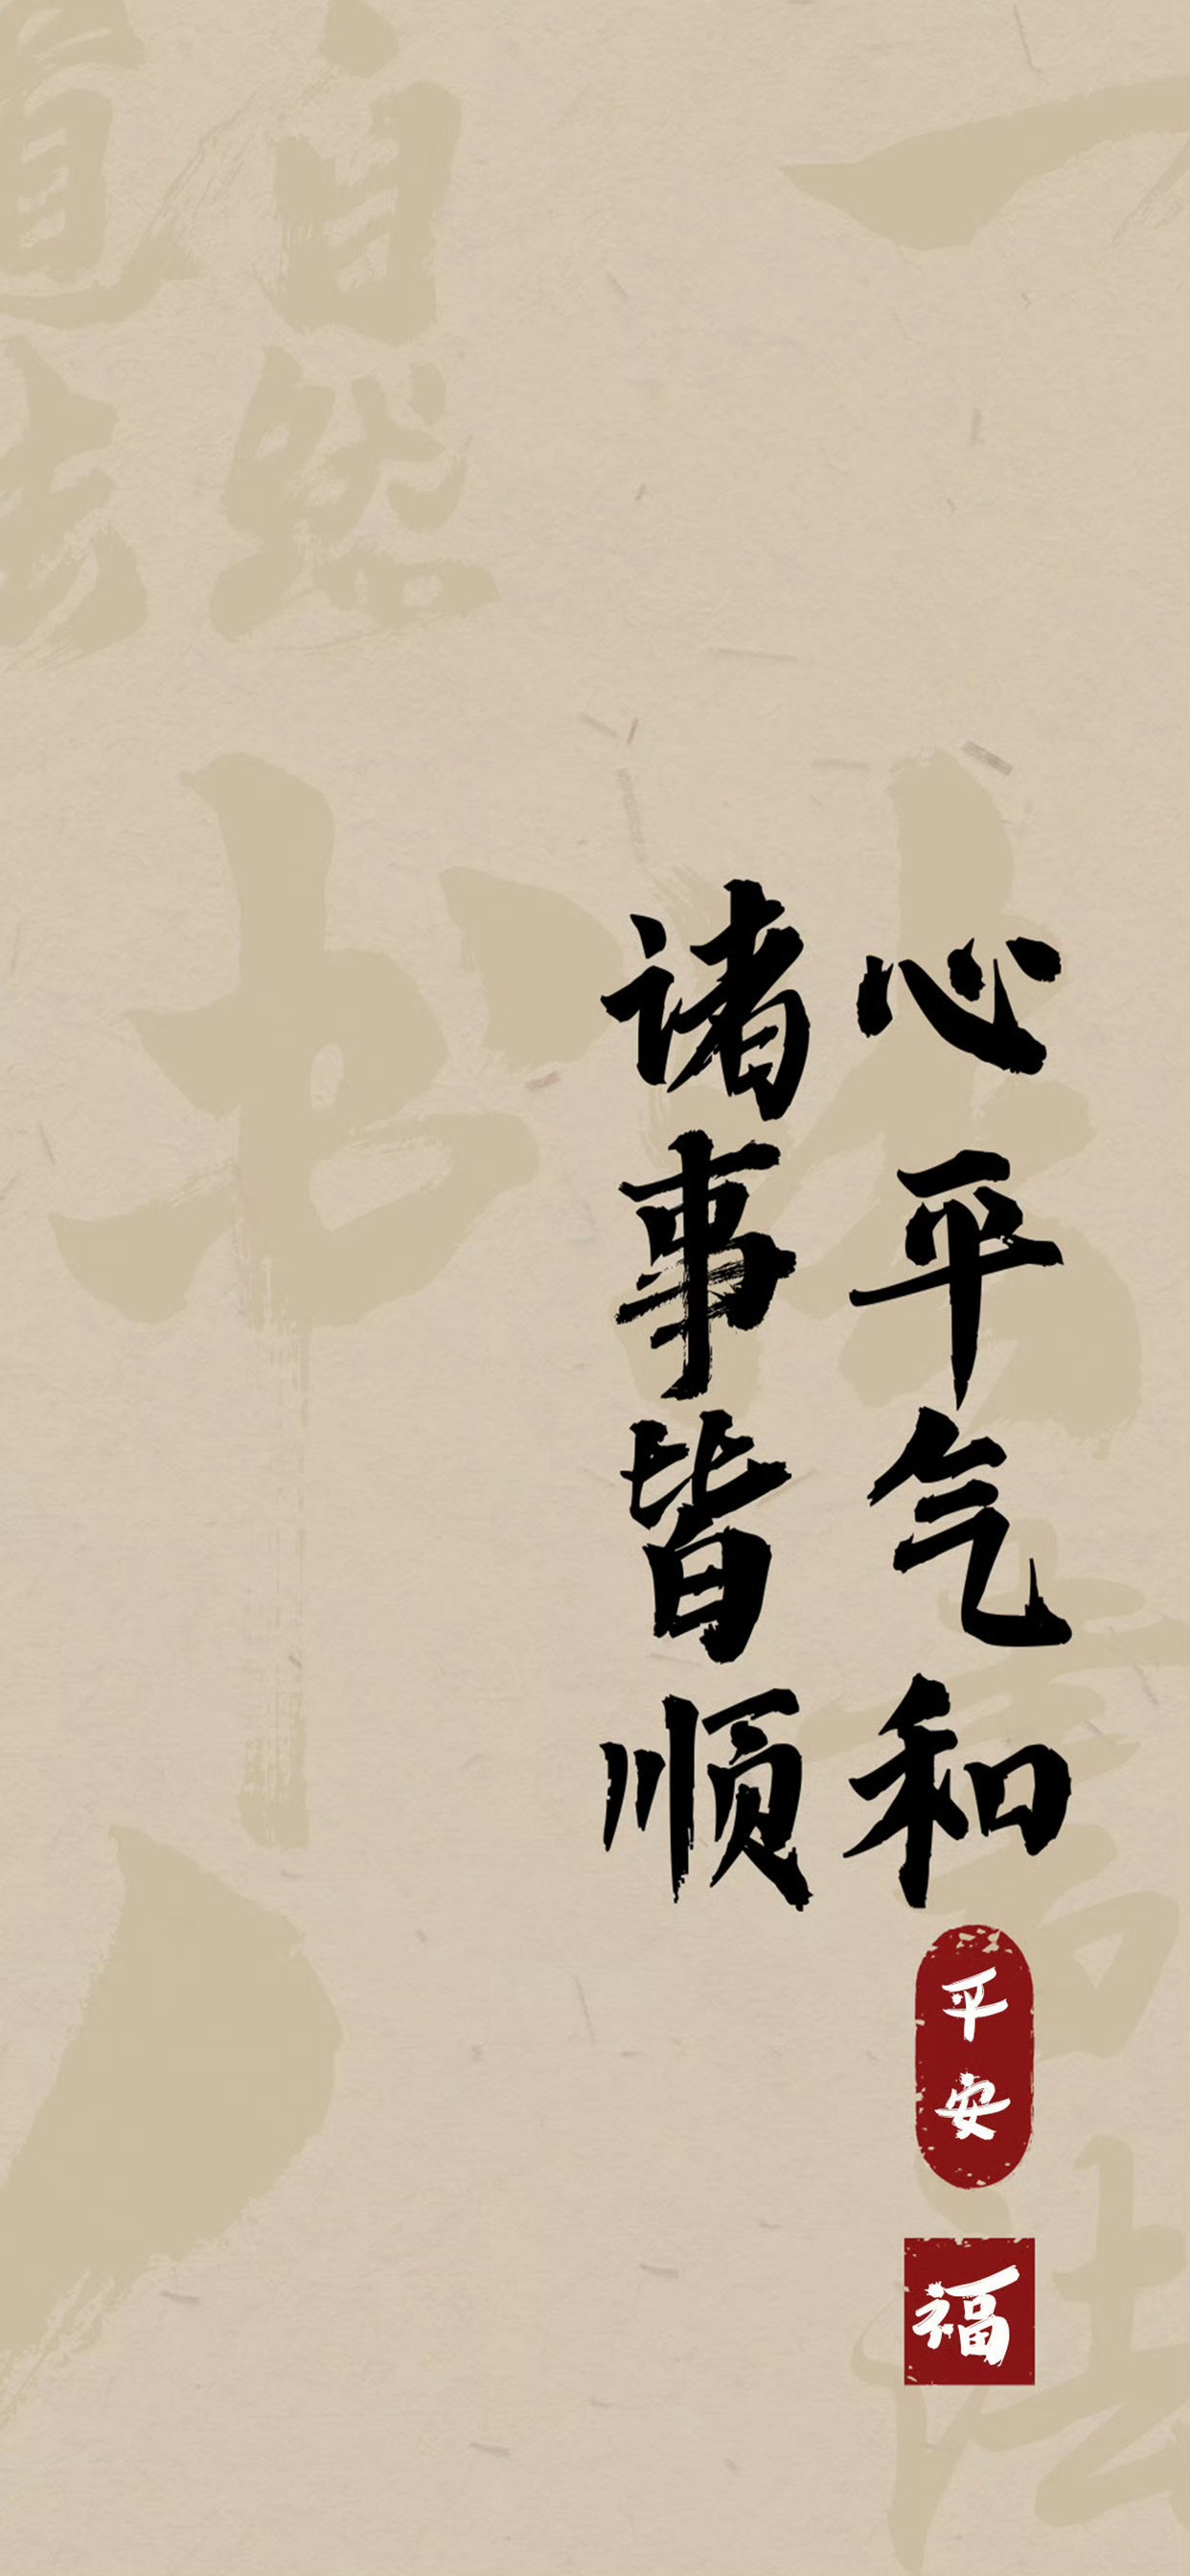 心平气和
诸事皆顺
平安
福
自然